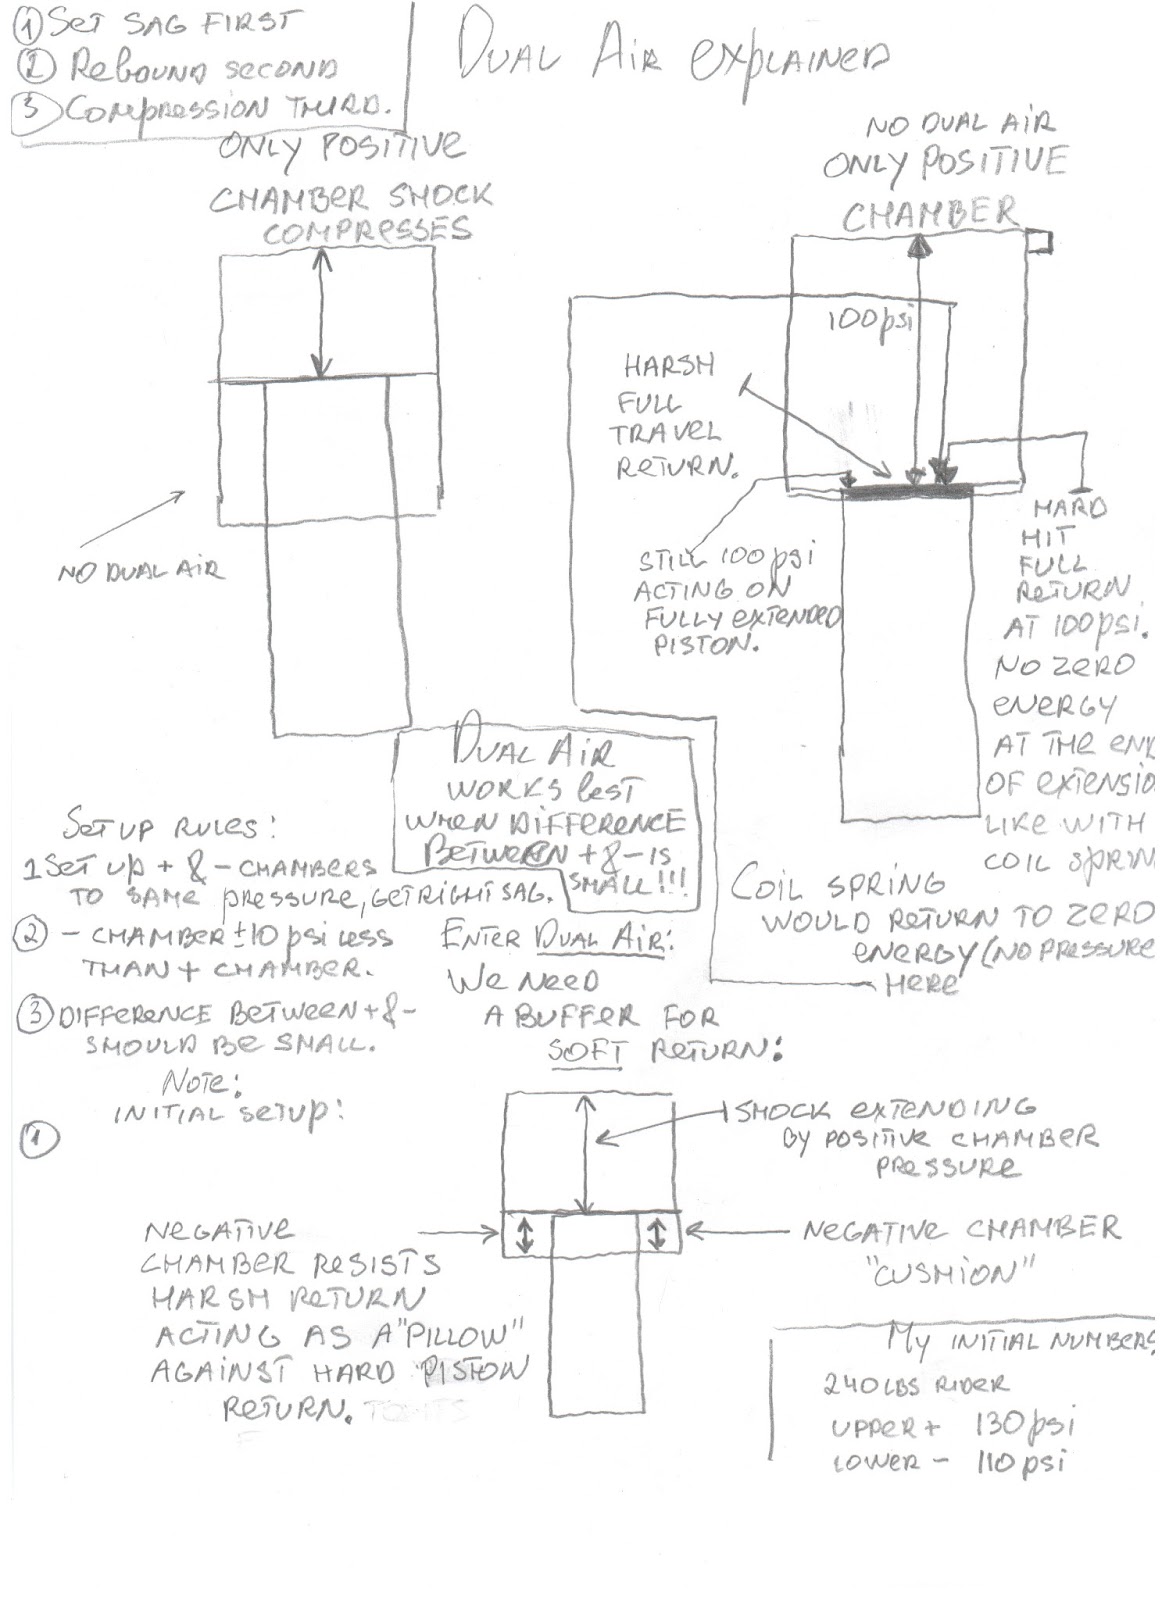 ① SET SAG FIRST
② REBOUND SECOND
③ COMPRESSION THIRD.
DUAL AIR EXPLAINED
ONLY POSITIVE
CHAMBER SHOCK
COMPRESSES
NO DUAL AIR
NO DUAL AIR
ONLY POSITIVE
CHAMBER
100psi
HARSH
FULL
TRAVEL
RETURN.
STILL 100psi
ACTING ON
FULLY EXTENDED
PISTON.
HARD
HIT
FULL
RETURN
AT 100psi.
NO ZERO
ENERGY
AT THE EN
OF EXTENSIO
LIKE WITH
COIL SPRIN
COIL SPRING
WOULD RETURN TO ZERO
ENERGY (NO PRESSURE
HERE
DUAL AIR
WORKS BEST
WHEN DIFFERENCE
BETWEEN + & - IS
SMALL!!!
SET UP RULES:
1 SET UP + & - CHAMBERS
TO SAME PRESSURE, GET RIGHT SAG.
② - CHAMBER ±10 psi LESS
THAN + CHAMBER.
③ DIFFERENCE BETWEEN + & -
SHOULD BE SMALL.
NOTE:
INITIAL SETUP:
①
ENTER DUAL AIR:
WE NEED
A BUFFER FOR
SOFT RETURN:
SHOCK EXTENDING
BY POSITIVE CHAMBER
PRESSURE
NEGATIVE
CHAMBER RESISTS
HARSH RETURN
ACTING AS A "PILLOW"
AGAINST HARD PISTON
RETURN.
NEGATIVE CHAMBER
"CUSHION"
MY INITIAL NUMBERS
240LBS RIDER
UPPER + 130psi
LOWER - 110psi